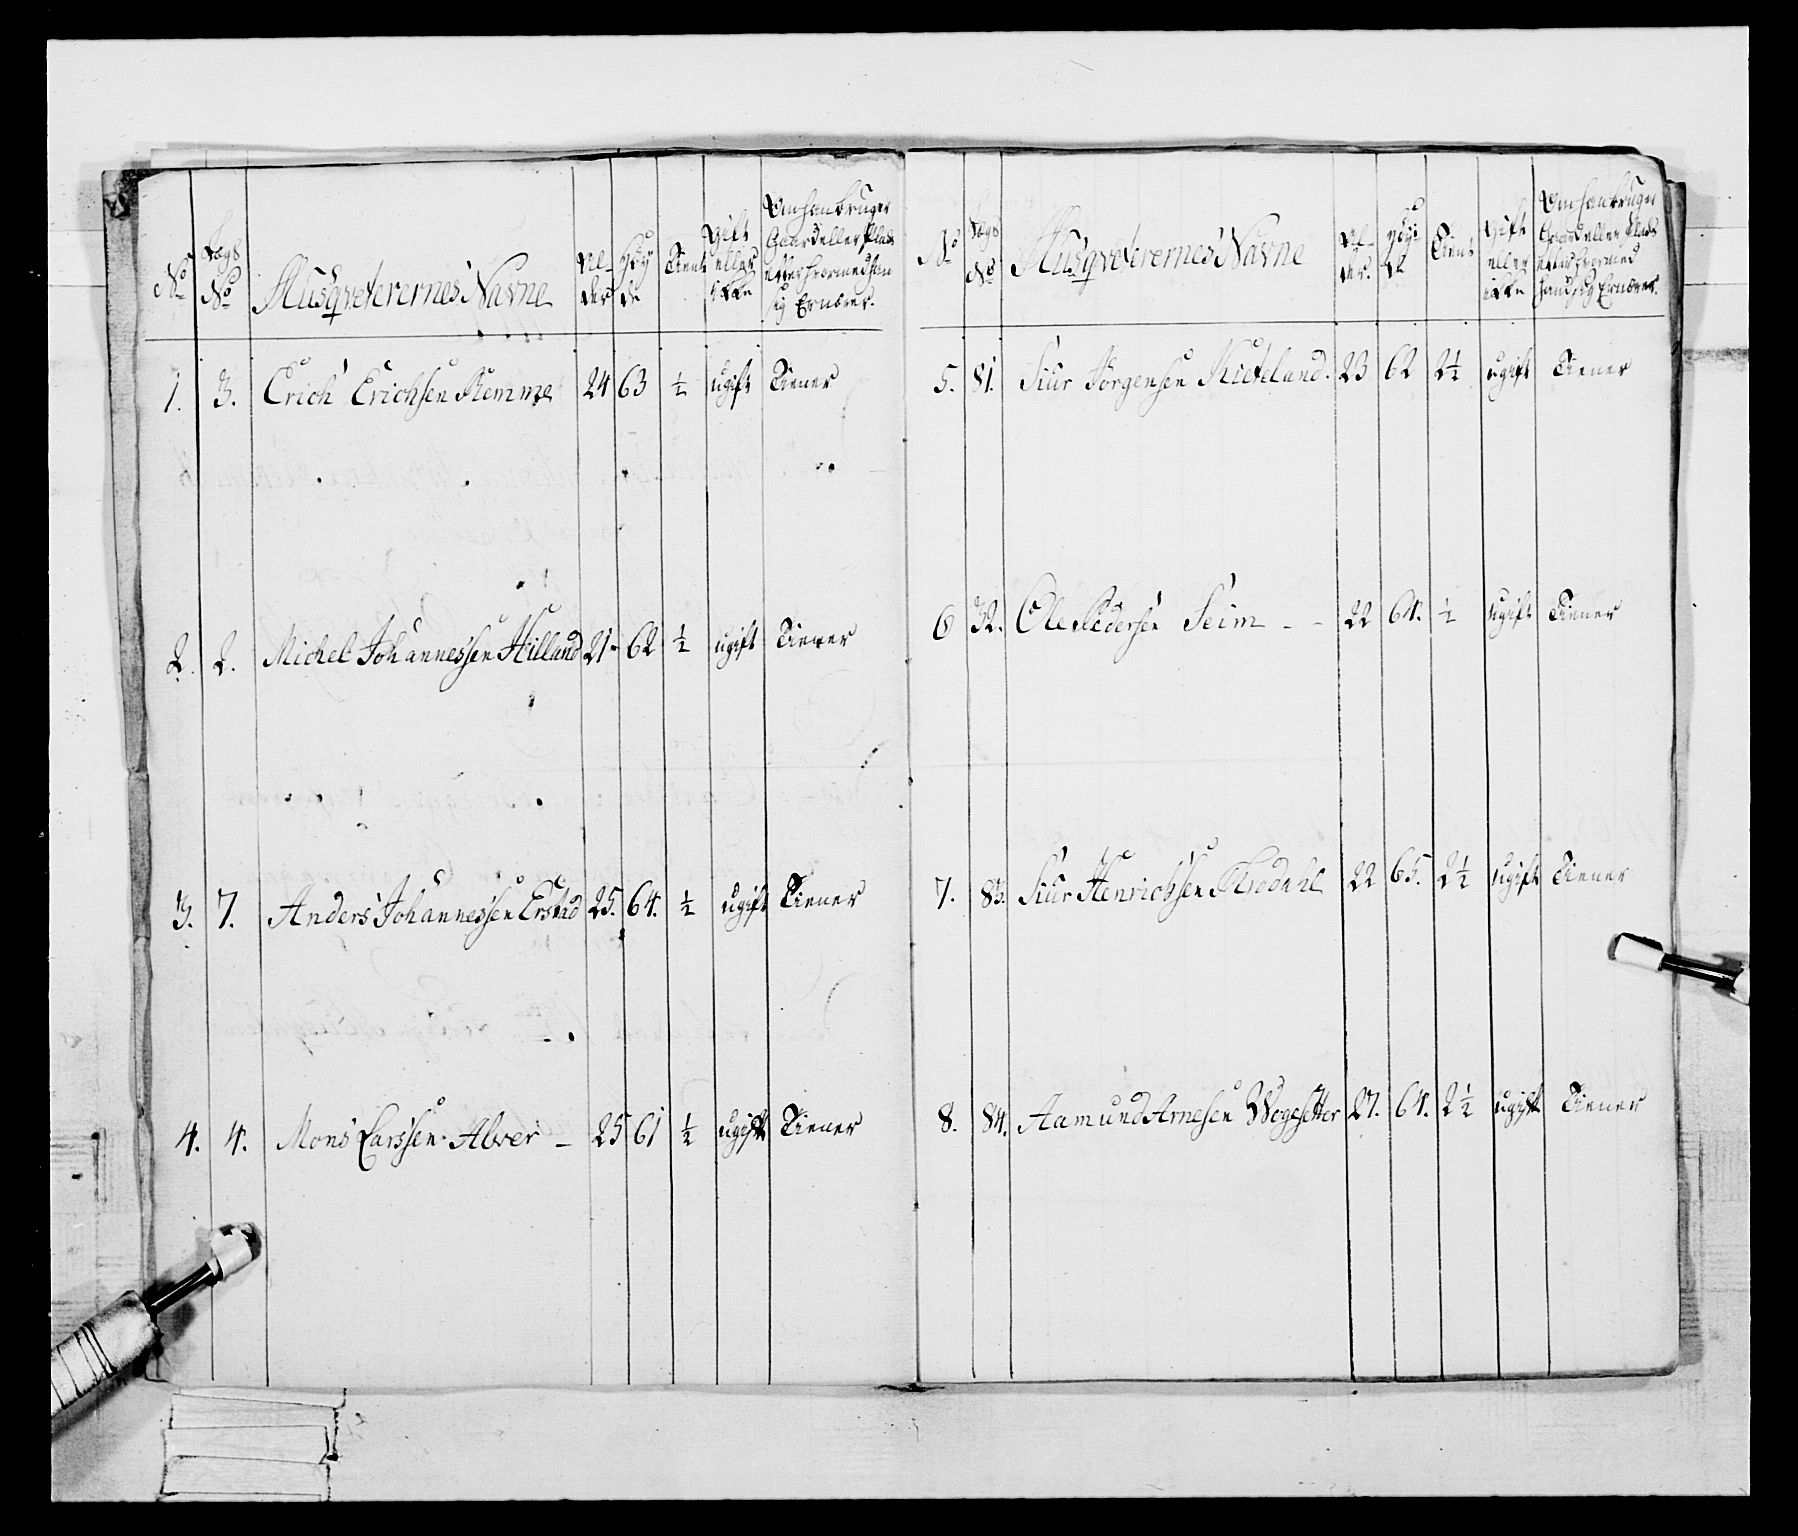 No
Lægs No
Musqveterernes Navne
Al-der
Høy de
Tient
Gift eller ikke
Om han bruger Gaard eller Plads eller hvormed han sig Ernærer.
1. 3. Erich Erichsen Remme 24 63 ½ ugift Tiener
2. 2. Michel Johannessen Hilland 21 62 ½ ugift Tiener
3. 7. Anders Johannessen Erstad 25. 64. ½ ugift Tiener
4. 4. Mons Larssen Alver – 25 61 ½ ugift Tiener
No
Lægs No
Musqveterernes Navne
Al-der.
Høy-de
Tient
Gift eller ikke
Om han bruger Gaard eller Plads eller hvormed hand sig Ernærer.
5. 81. Siur Jörgensen 23 62 2½ ugift Tiener
6 32. Ole Pedersen Seim - - 22 64. ½ ugift Tiener
7. 83. Siur Henrichsen 22 65. 2½ ugift Tiener
8. 84. Aamund Arnesen Wogesetter 27. 64. 2½ ugift Tiener